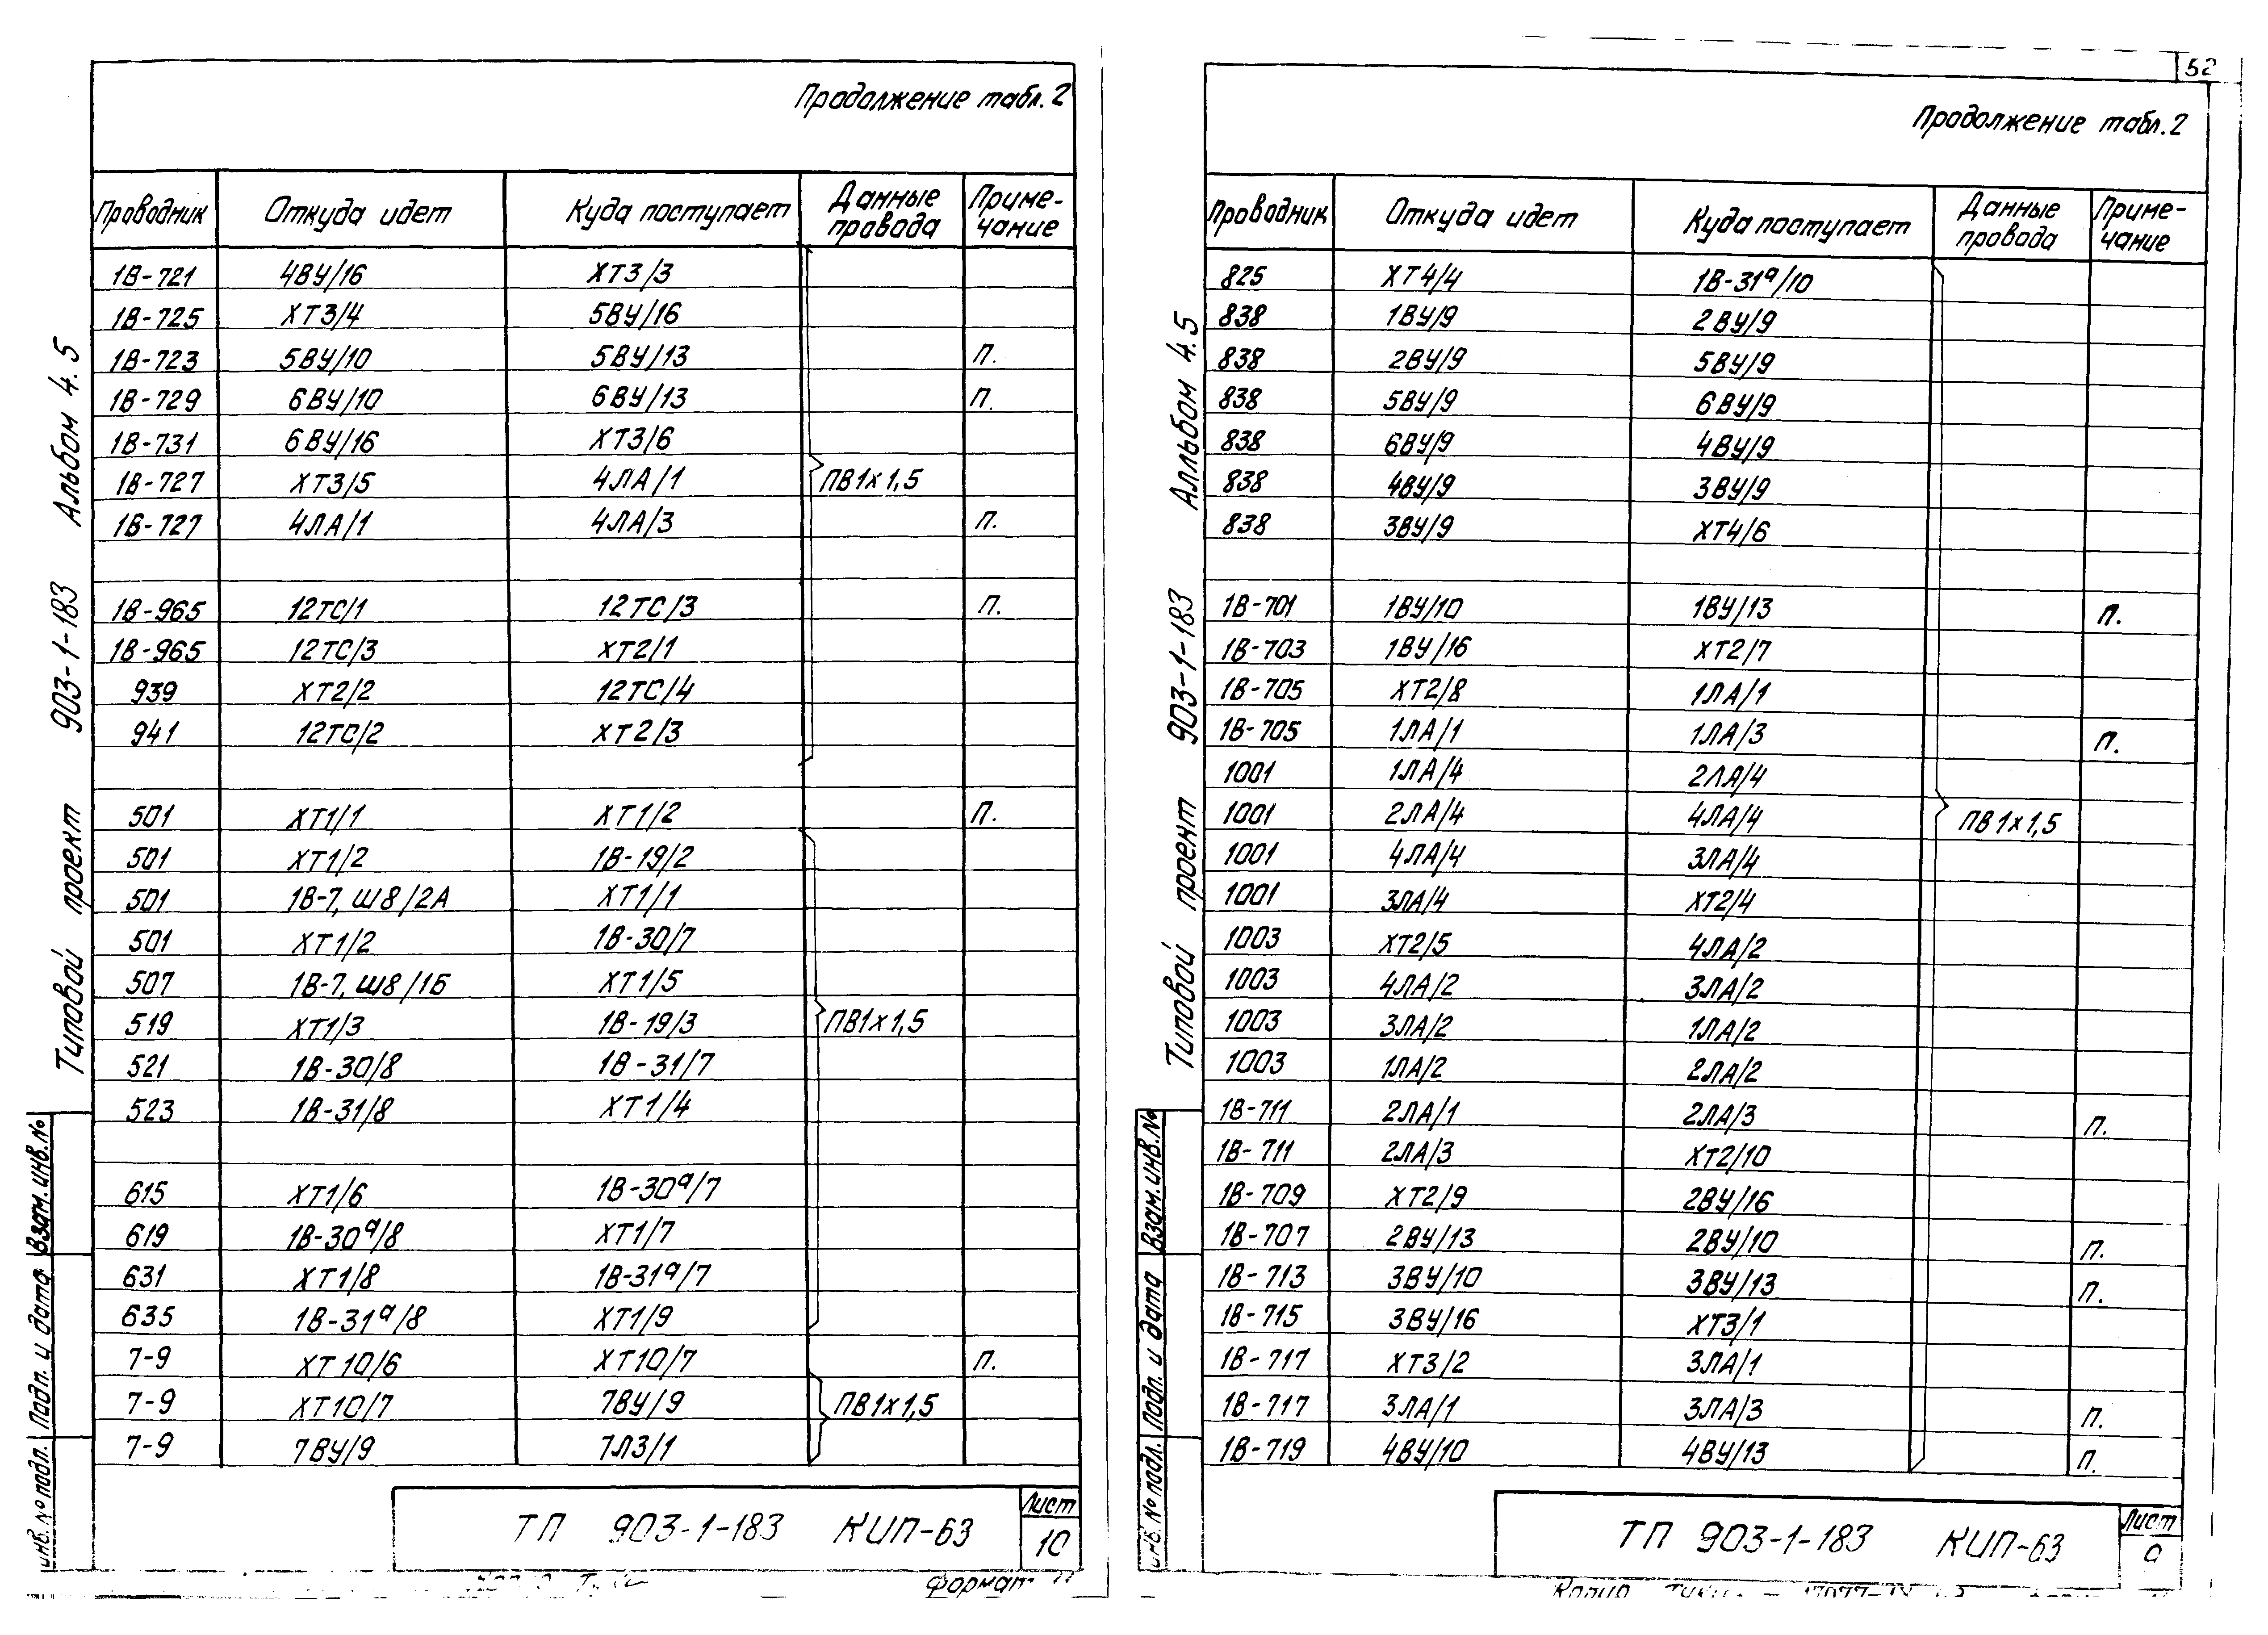 Продолжение табл.2
Проводник Откуда идет Куда поступает Данные провода Приме-чание
1В-721 4ВУ/16 ХТ3/3
1В-725 ХТ3/4 5ВУ/16
1В-723 5ВУ/10 5ВУ/13 П.
1В-729 6ВУ/10 6ВУ/13 П.
1В-731 6ВУ/16 ХТ3/6
1В-727 ХТ3/5 4ЛА/1 ПВ1х1,5
1В-727 4ЛА/1 4ЛА/3 П.
1В-965 12ТС/1 12ТС/3 П.
1В-965 12ТС/3 ХТ2/1
939 ХТ2/2 12ТС/4
941 12ТС/2 ХТ2/3
501 ХТ1/1 ХТ1/2 П.
501 ХТ1/2 1В-19/2
501 1В-7, Ш8/2А ХТ1/1
501 ХТ1/2 1В-30/7
507 1В-7, Ш8/1Б ХТ1/5
519 ХТ1/3 1В-19/3 ПВ1х1,5
521 1В-30/8 1В-31/7
523 1В-31/8 ХТ1/4
615 ХТ1/6 1В-30ª/7
619 1В-30ª/8 ХТ1/7
631 ХТ1/8 1В-31ª/7
635 1В-31ª/8 ХТ1/9
7-9 ХТ10/6 ХТ10/7 П.
7-9 ХТ10/7 7ВУ/9 ПВ1х1,5
7-9 7ВУ/9 7ЛЗ/1
ТП 903-1-183 КИП-63
Лист
10
Формат
Типовой проект 903-1-183 Альбом 4.5
Взам.инв.№
Подп. и дата
инв.№подл.
52
Продолжение табл.2
Проводник Откуда идет Куда поступает Данные провода Приме-чание
825 ХТ4/4 1В-31ª/10
838 1ВУ/9 2ВУ/9
838 2ВУ/9 5ВУ/9
838 5ВУ/9 6ВУ/9
838 6ВУ/9 4ВУ/9
838 4ВУ/9 3ВУ/9
838 3ВУ/9 ХТ4/6
1В-701 1ВУ/10 1ВУ/13 П.
1В-703 1ВУ/16 ХТ2/7
1В-705 ХТ2/8 1ЛА/1
1В-705 1ЛА/1 1ЛА/3 П.
1001 1ЛА/4 2ЛА/4
1001 2ЛА/4 4ЛА/4 ПВ1х1,5
1001 4ЛА/4 3ЛА/4
1001 3ЛА/4 ХТ2/4
1003 ХТ2/5 4ЛА/2
1003 4ЛА/2 3ЛА/2
1003 3ЛА/2 1ЛА/2
1003 1ЛА/2 2ЛА/2
1В-711 2ЛА/1 2ЛА/3 П.
1В-711 2ЛА/3 ХТ2/10
1В-709 ХТ2/9 2ВУ/16
1В-707 2ВУ/13 2ВУ/10 П.
1В-713 3ВУ/10 3ВУ/13 П.
1В-715 3ВУ/16 ХТ3/1
1В-717 ХТ3/2 3ЛА/1
1В-717 3ЛА/1 3ЛА/3 П.
1В-719 4ВУ/10 4ВУ/13 П.
ТП 903-1-183 КИП-63
Лист
9
Типовой проект 903-1-183 Алльбом 4.5
Взам.инв.№
Подп. и дата
инв.№подл.